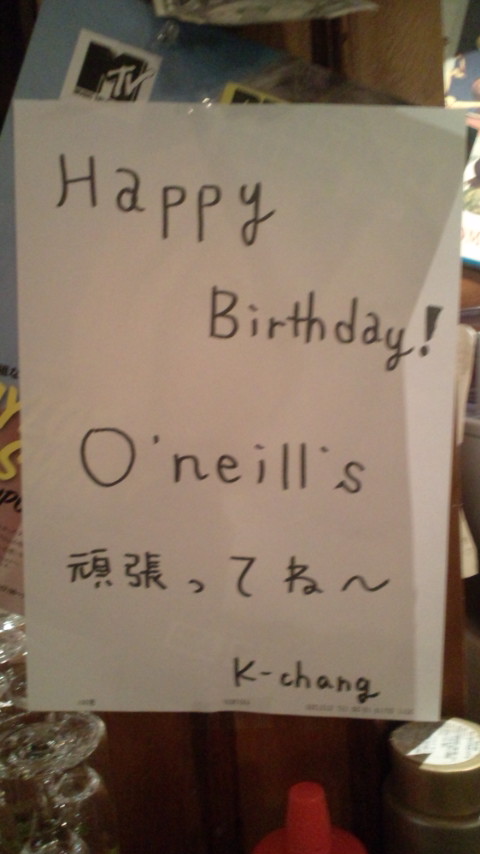 MTV
Happy
Birthday!
O'neill's
頑張ってね〜
K-chang